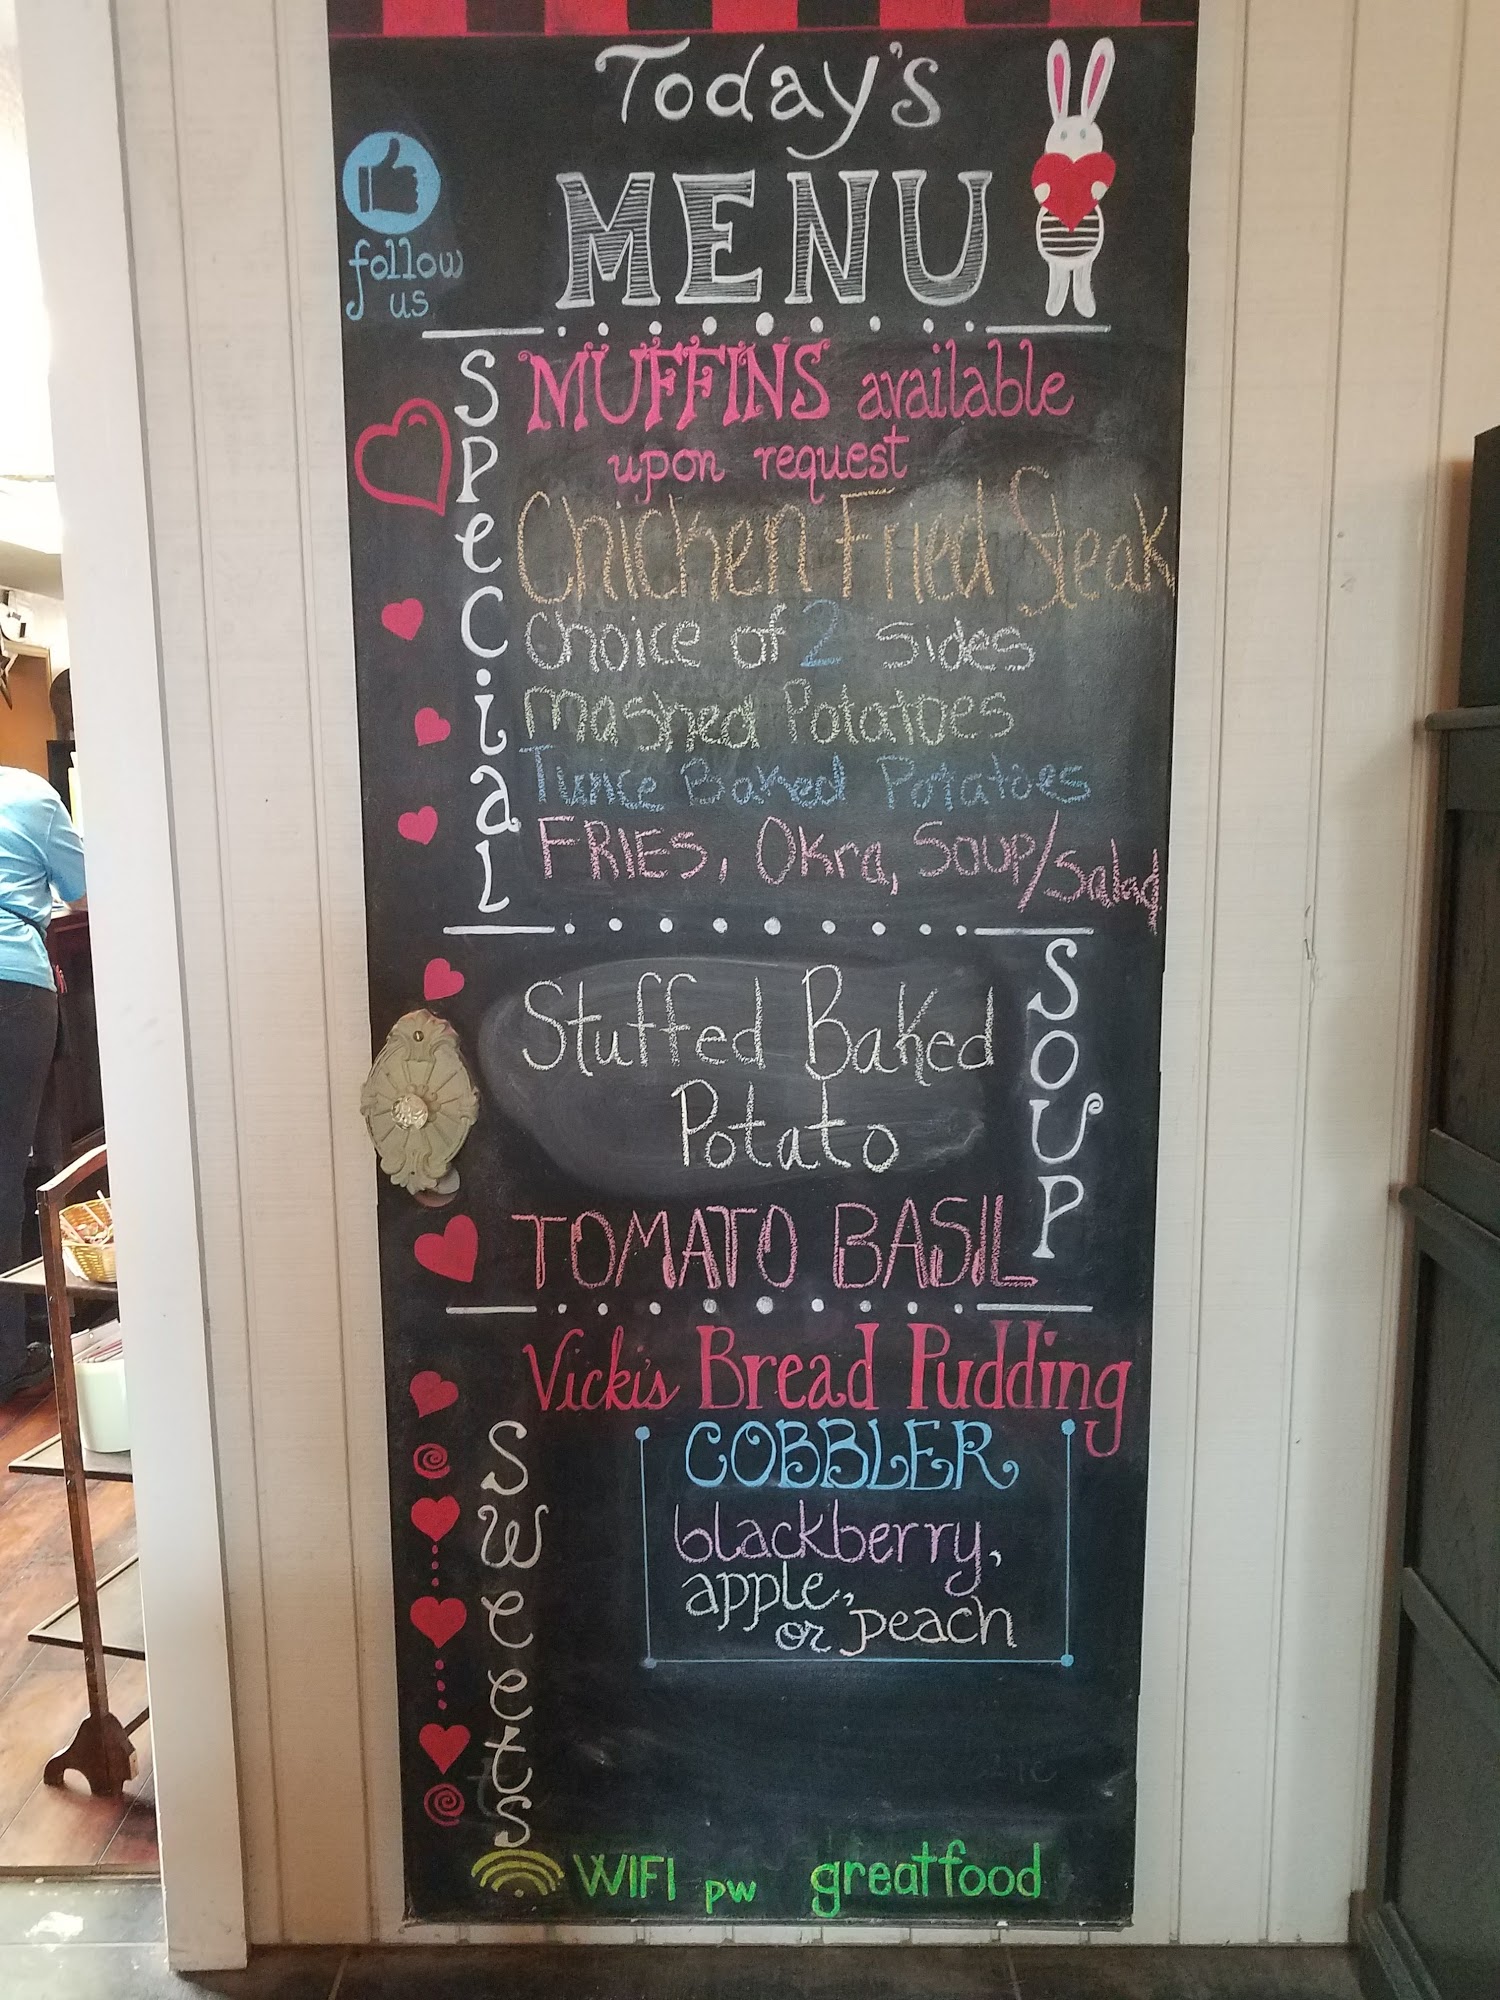 Today's
MENU
follow
us
SPeCiaL
MUFFINS available
upon request
Chicken Fried Steak
Choice of 2 sides
mashed Potatoes
Twice Baked Potatoes
FRIES, Okra, Soup/Salad
SOUP
Stuffed Baked
Potato
TOMATO BASIL
Sweets
Vicki's Bread Pudding
COBBLER
blackberry,
apple,
or peach
WIFI pw greatfood